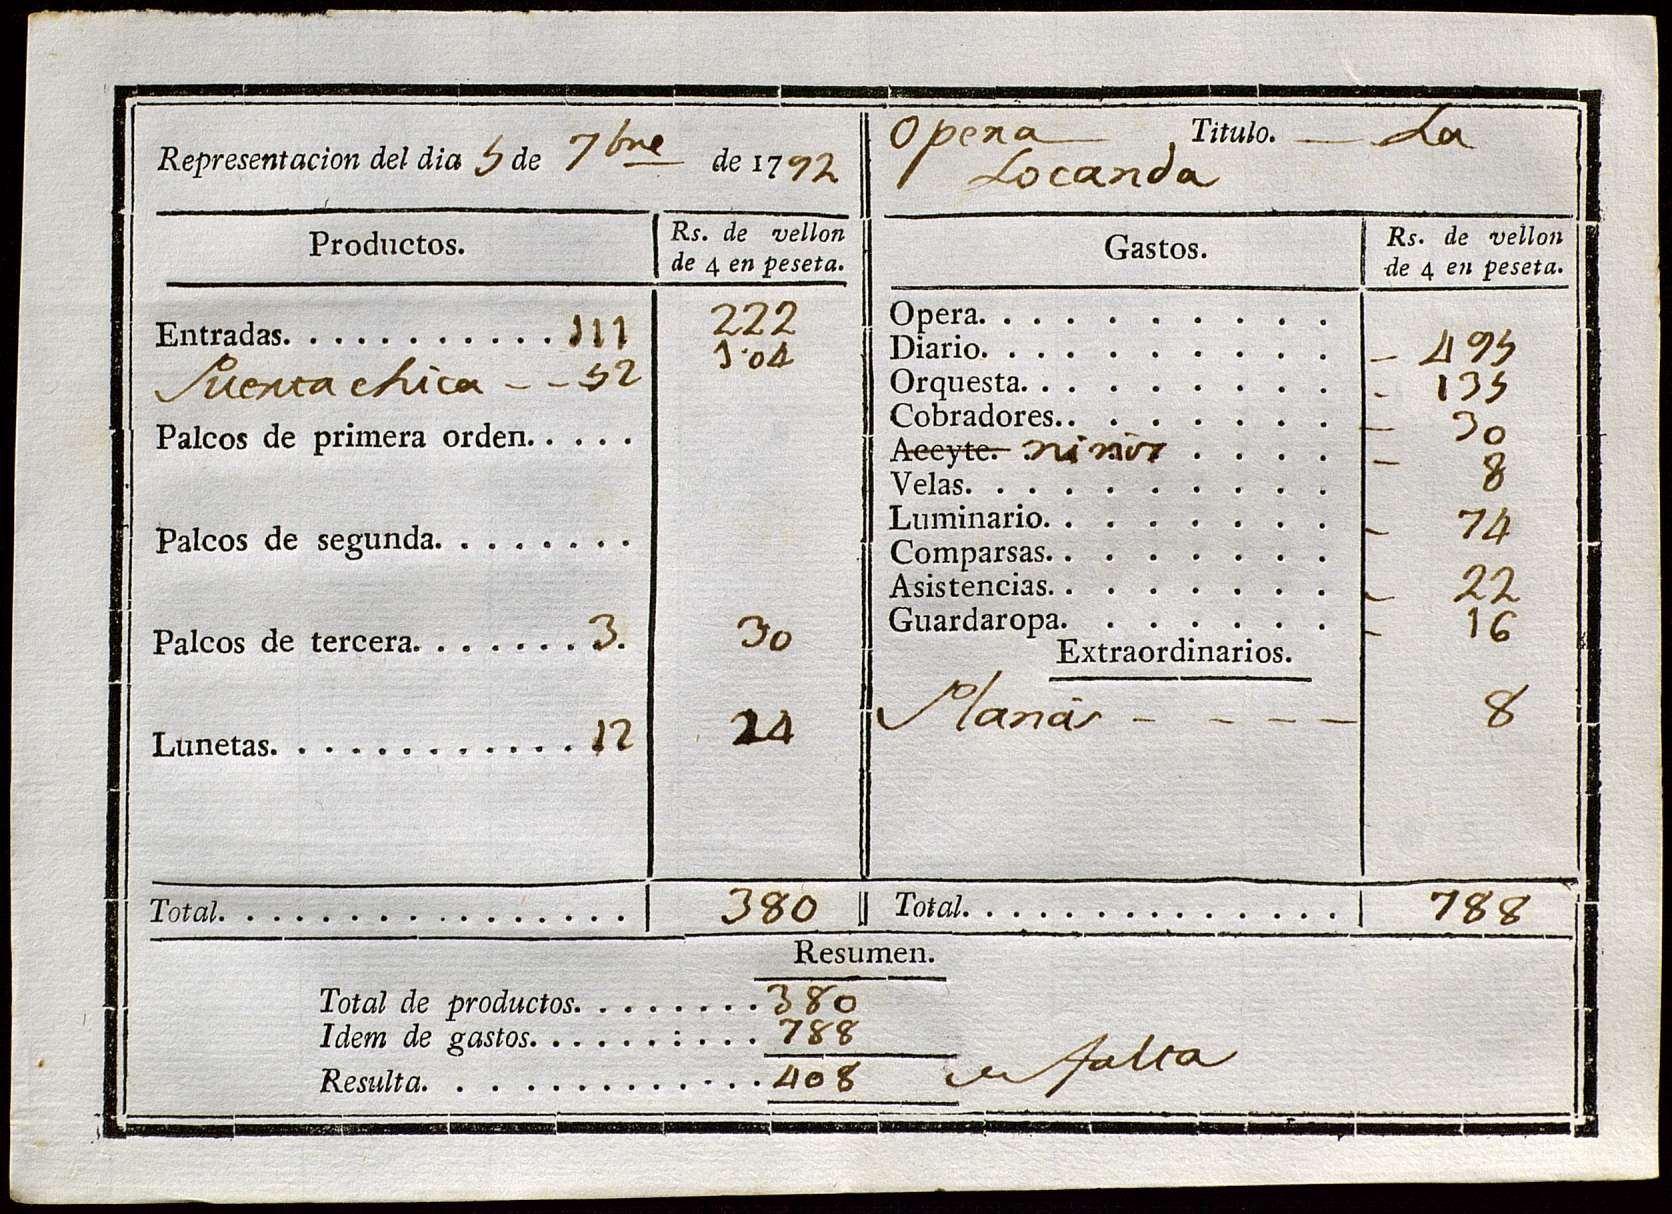 Representacion del dia 5 de 7bre de 1792
Opera Titulo. La
Locanda
Productos. Rs. de vellon
de 4 en peseta.
Entradas. . . . . . . . . . . 111 222
Puerta chica - - 52 104
Palcos de primera orden. . . . .
Palcos de segunda. . . . . . . .
Palcos de tercera. . . . . . . 3. 30
Lunetas. . . . . . . . . . . . 12 24
Total. . . . . . . . . . . . . . . . 380
Gastos. Rs. de vellon
de 4 en peseta.
Opera. . . . . . . . . .
Diario. . . . . . . . . . - 495
Orquesta. . . . . . . . . - 135
Cobradores. . . . . . . . - 30
Aceyte. niños . . . . - 8
Velas. . . . . . . . . .
Luminario. . . . . . . . - 74
Comparsas. . . . . . . .
Asistencias. . . . . . . . - 22
Guardaropa. . . . . . . - 16
Extraordinarios.
- - - - 8
Total. . . . . . . . . . . . . . . 788
Resumen.
Total de productos. . . . . . . . 380
Idem de gastos. . . . . . : . . . 788
Resulta. . . . . . . . . . . . . 408 falta